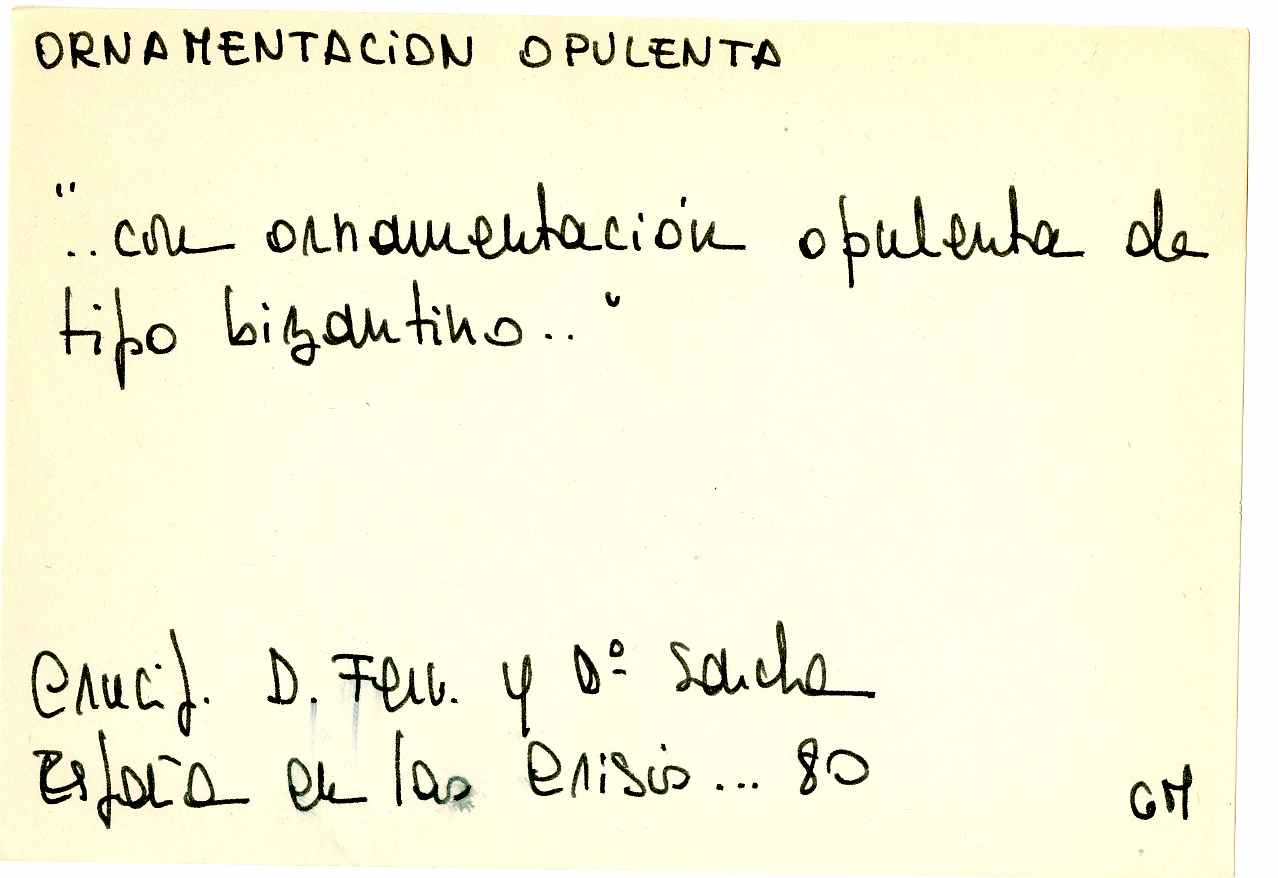 ORNAMENTACIÓN OPULENTA
"..con ornamentación opulenta de
tipo bizantino.."
Crucif. D. Fern. y Dª Sancha
España en las Crisis... 80
GM